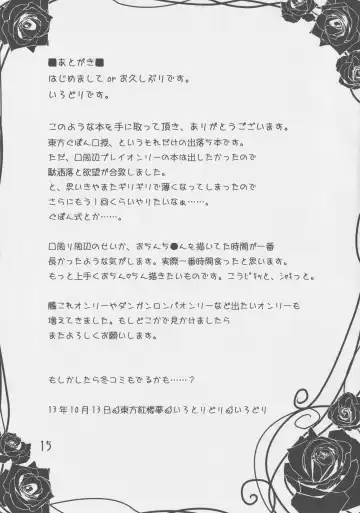 ■あとがき■
はじめまして or お久しぶりです。
いろどりです。
このような本を手に取って頂き、ありがとうございます。
東方ぐぽん口授、というそれだけの出落ち本です。
ただ、口周辺プレイオンリーの本は出したかったので
駄洒落と欲望が合致しました。
と、思いきやまたギリギリで薄くなってしまったので
さらにもう1回くらいやりたいなぁ……。
ぐぽん式とか……。
口周り周辺のせいか、おちんち●んを描いてた時間が一番
長かったような気がします。実際一番時間食ったと思います。
もっと上手くおちん○ちん描きたいものです。こうﾋﾞｷｯと、ｼｬｷｯっと。
艦これオンリーやダンガンロンパオンリーなど出たいオンリーも
増えてきました。もしどこかで見かけましたら
またよろしくお願いします。
もしかしたら冬コミもでるかも……？
13年10月13日 東方紅楼夢 いろとりどり いろどり
15